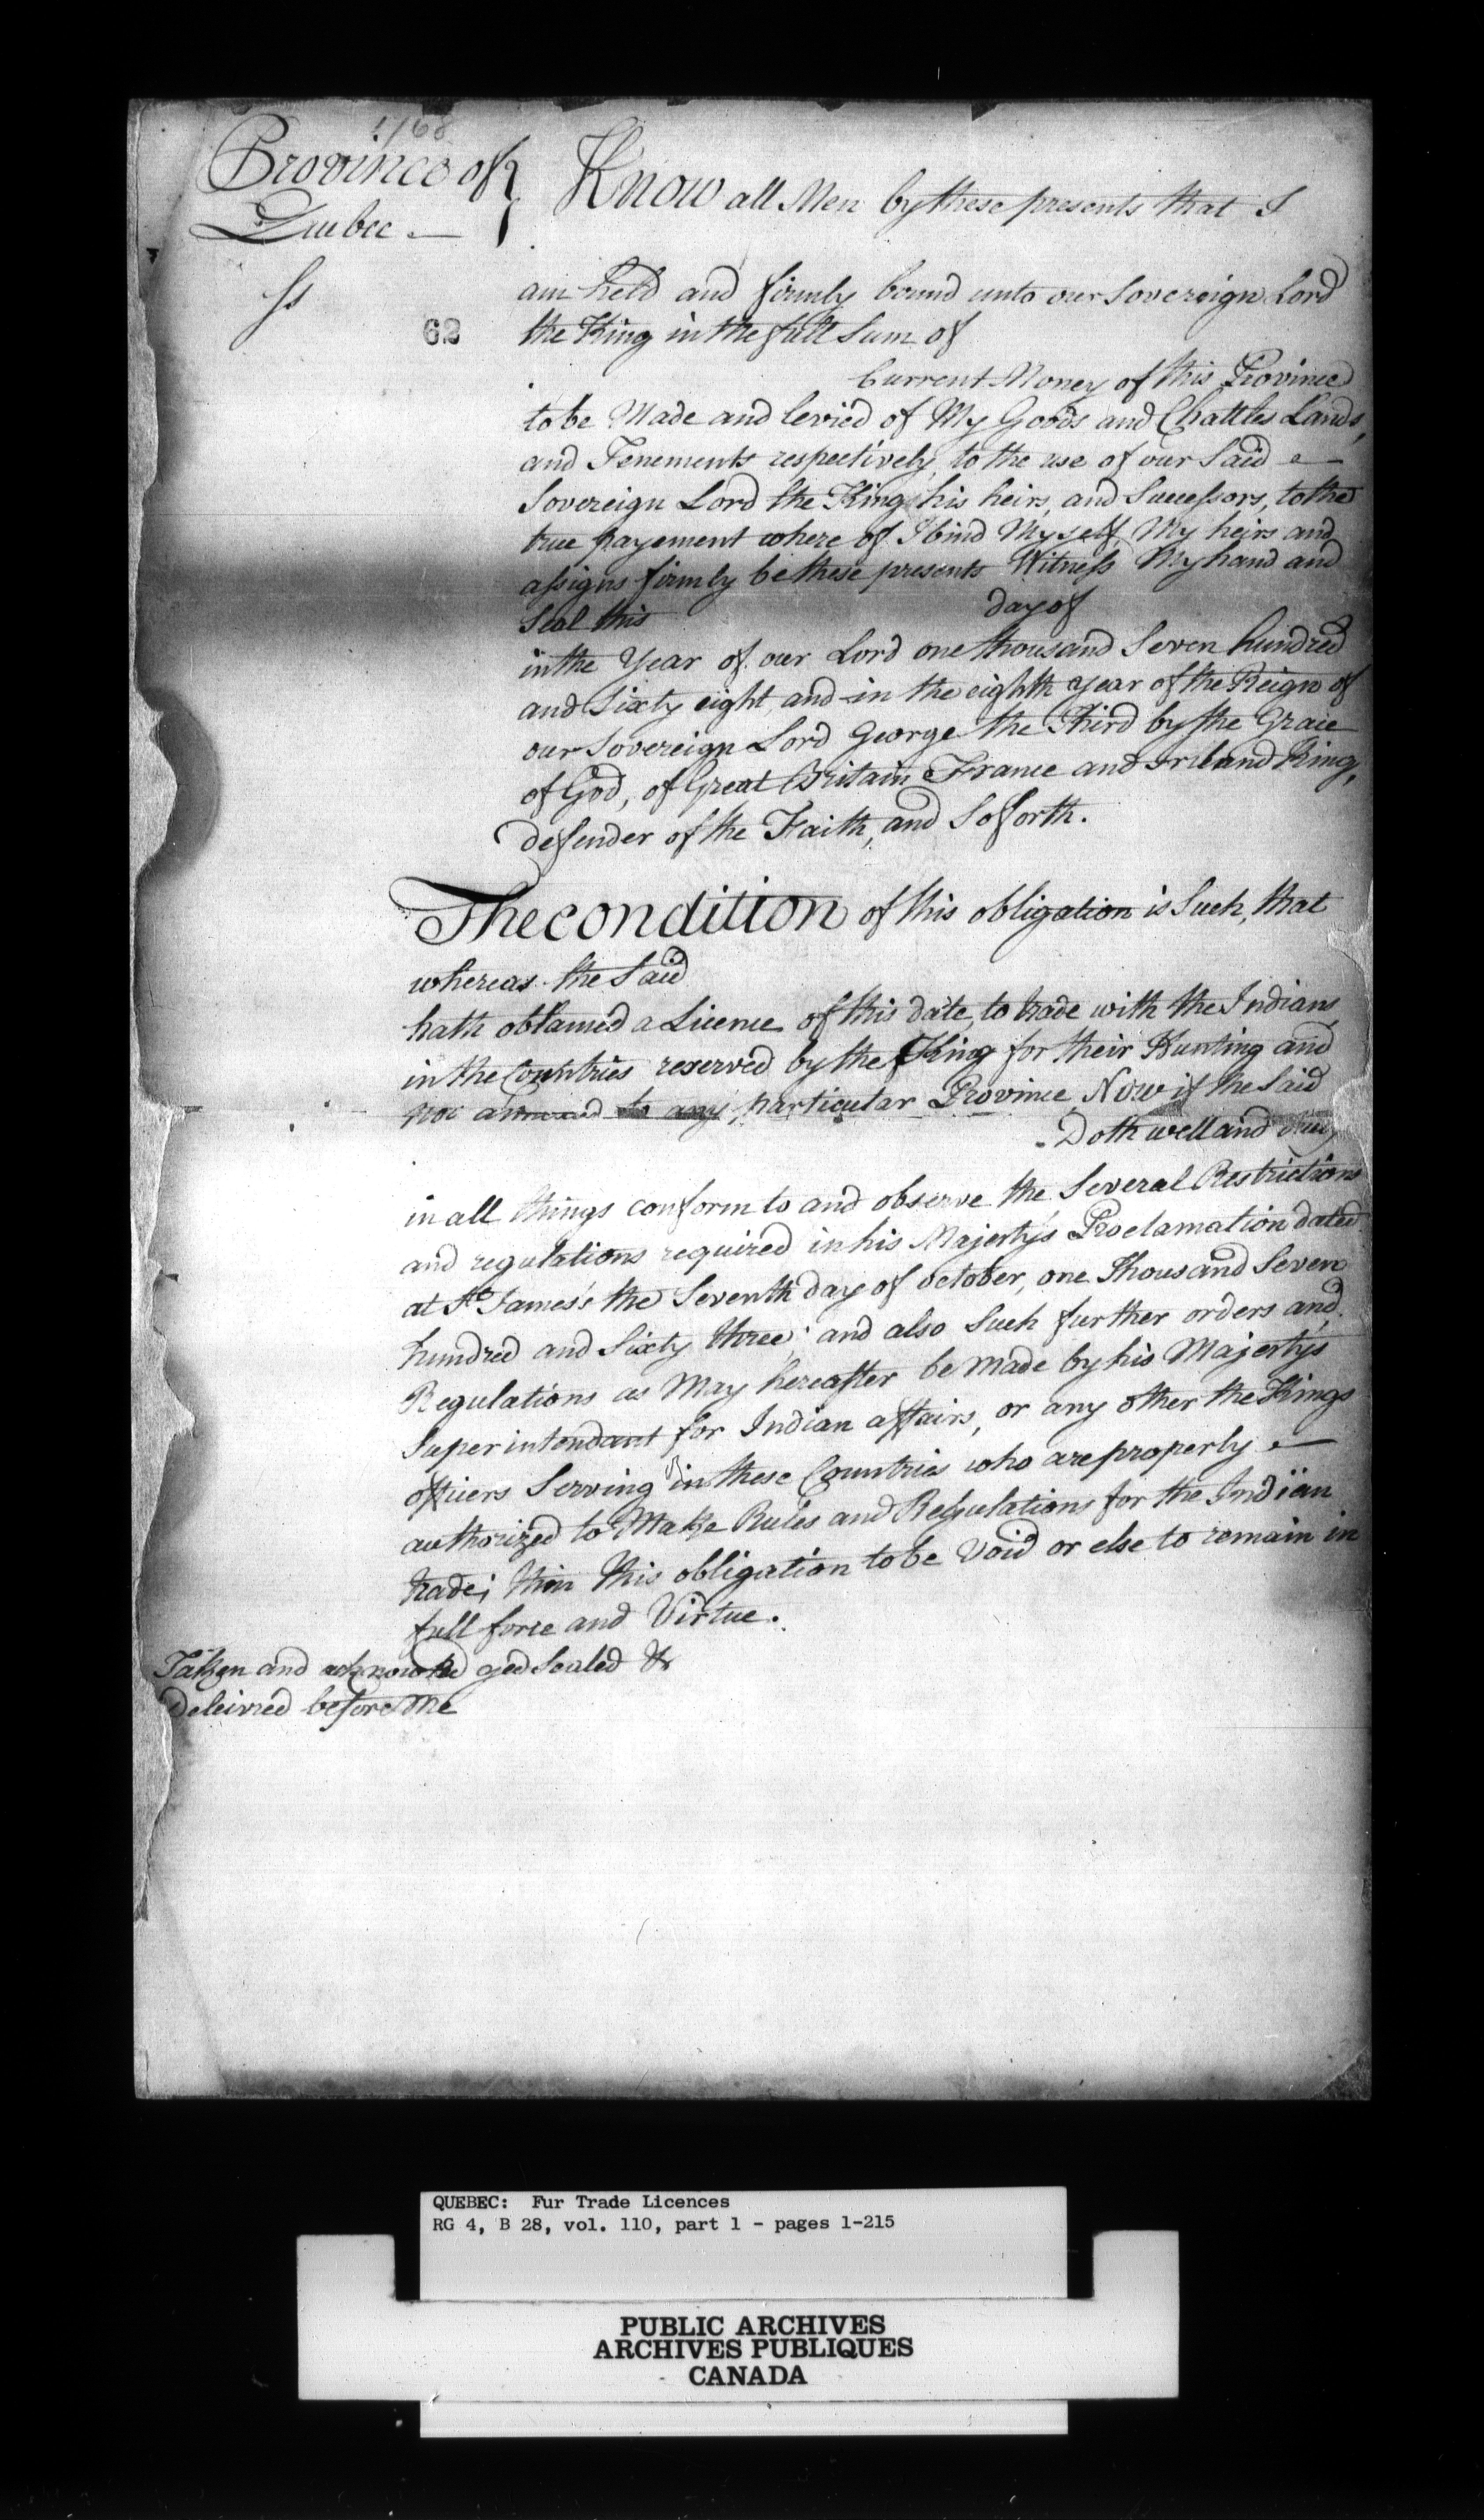 1768
Province of
Quebec
ss
62
Know all Men by these presents that I
am held and firmly bound unto our Sovereign Lord
the King in the full Sum of
Current Money of this Province
to be Made and levied of My Goods and Chattles Lands,
and Tenements respectively, to the use of our Said
Sovereign Lord the King, his heirs, and Successors, to the
true payement where of I bind My self, My heirs and
assigns firmly be these presents Witness My hand and
Seal this day of
in the Year of our Lord one thousand Seven hundred
and Sixty eight, and in the eighth year of the Reign of
our Sovereign Lord George the Third by the Grace
of God, of Great Britain France and Ireland King,
defender of the Faith, and So forth.
The condition of this obligation is Such, that
whereas the Said
hath obtained a Licence of this date, to trade with the Indians
in the Countries reserved by the King for their Hunting and
not annexed to any particular Province, Now if the Said
Doth well and
in all things conform to and observe the Several Restrictions
and regulations required in his Majesty's Proclamation dated
at St James's the Seventh day of october, one Thousand Seven
hundred and Sixty three; and also Such further orders and
Regulations as May hereafter be made by his Majesty's
Superintendant for Indian affairs, or any other the Kings
officers Serving in these Countries who are properly
authorized to Make Rules and Regulations for the Indian
trade; then this obligation to be Void or else to remain in
full force and Virtue.
Taken and acknowledged Sealed &
Deleivred before Me
QUEBEC: Fur Trade Licences
RG 4, B 28, vol. 110, part 1 - pages 1-215
PUBLIC ARCHIVES
ARCHIVES PUBLIQUES
CANADA